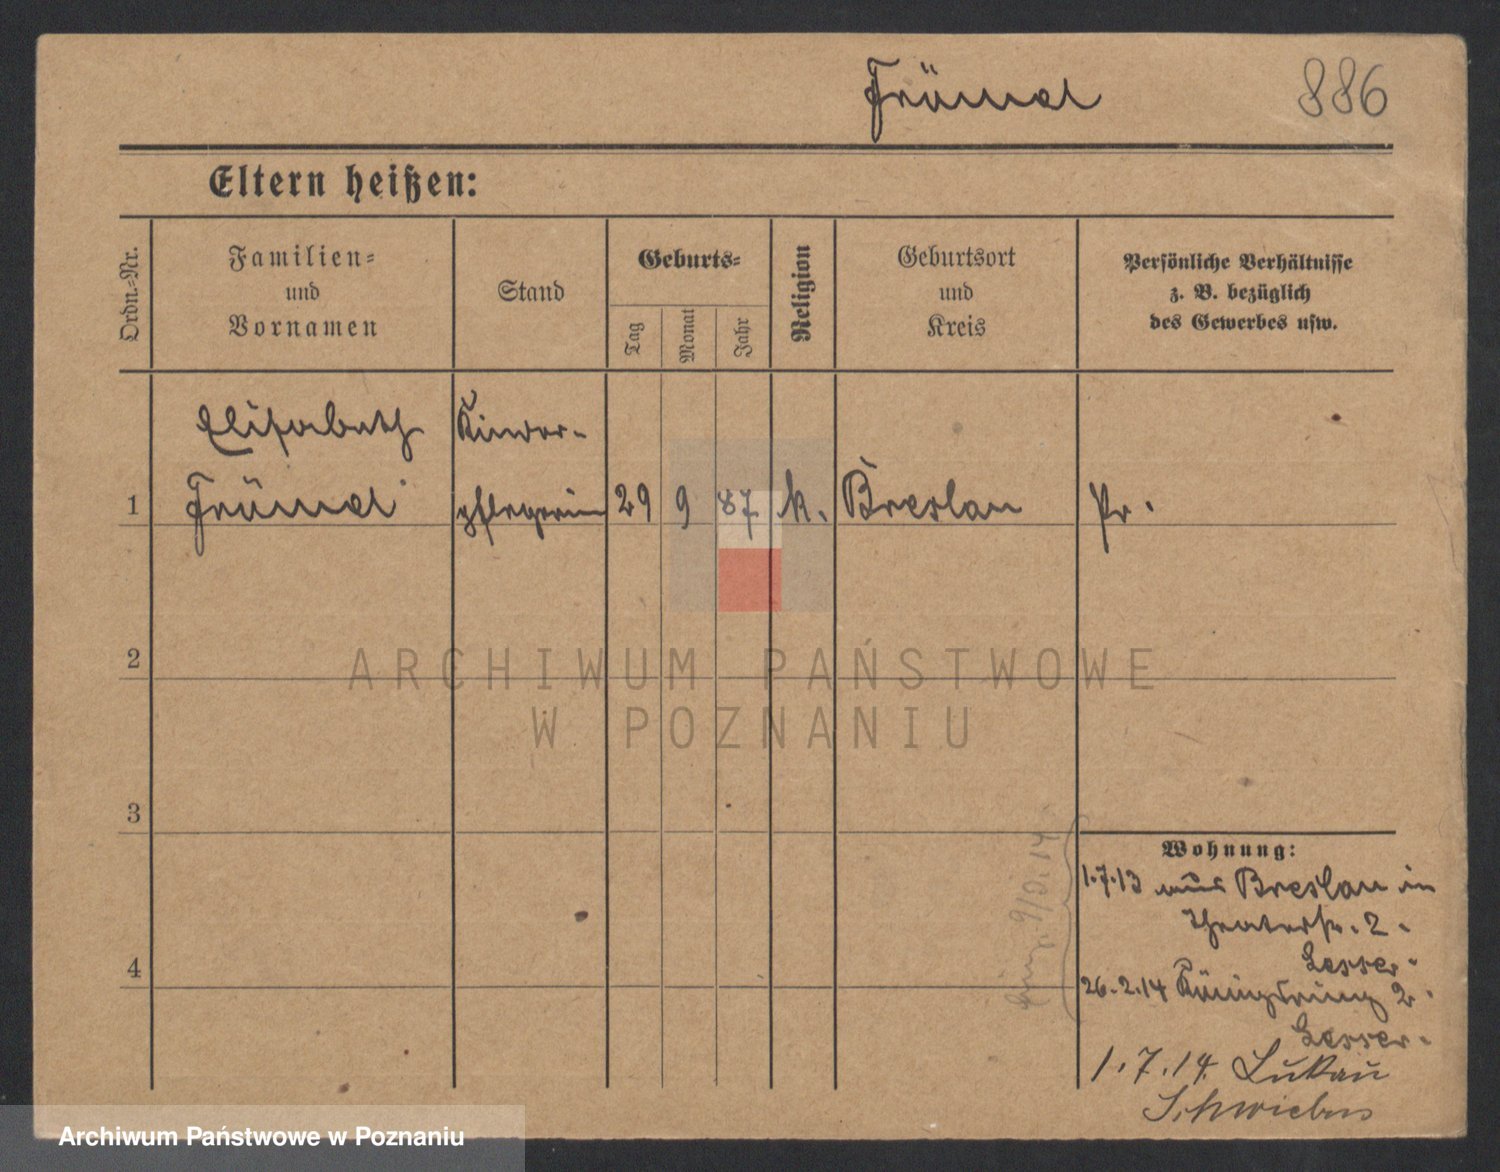 Frömel 886
Eltern heißen:
Ordn.-Nr.
Familien-
und
Vornamen
Stand
Geburts-
Tag
Monat
Jahr
Religion
Geburtsort
und
Kreis
Persönliche Verhältnisse
z. B. bezüglich
des Gewerbes usw.
Elisabeth Kinder-
1 Frömel pflegerin 29 9 87 k. Breslau Pr.
2
ARCHIWUM PAŃSTWOWE
W POZNANIU
3
Wohnung:
1.7.13 aus Breslau in
Theaterstr. 2.
Lesser.
4
26.2.14 Königsring 2.
Lesser.
1.7.14 Lukau
Schwiebus
9/3.14
Archiwum Państwowe w Poznaniu